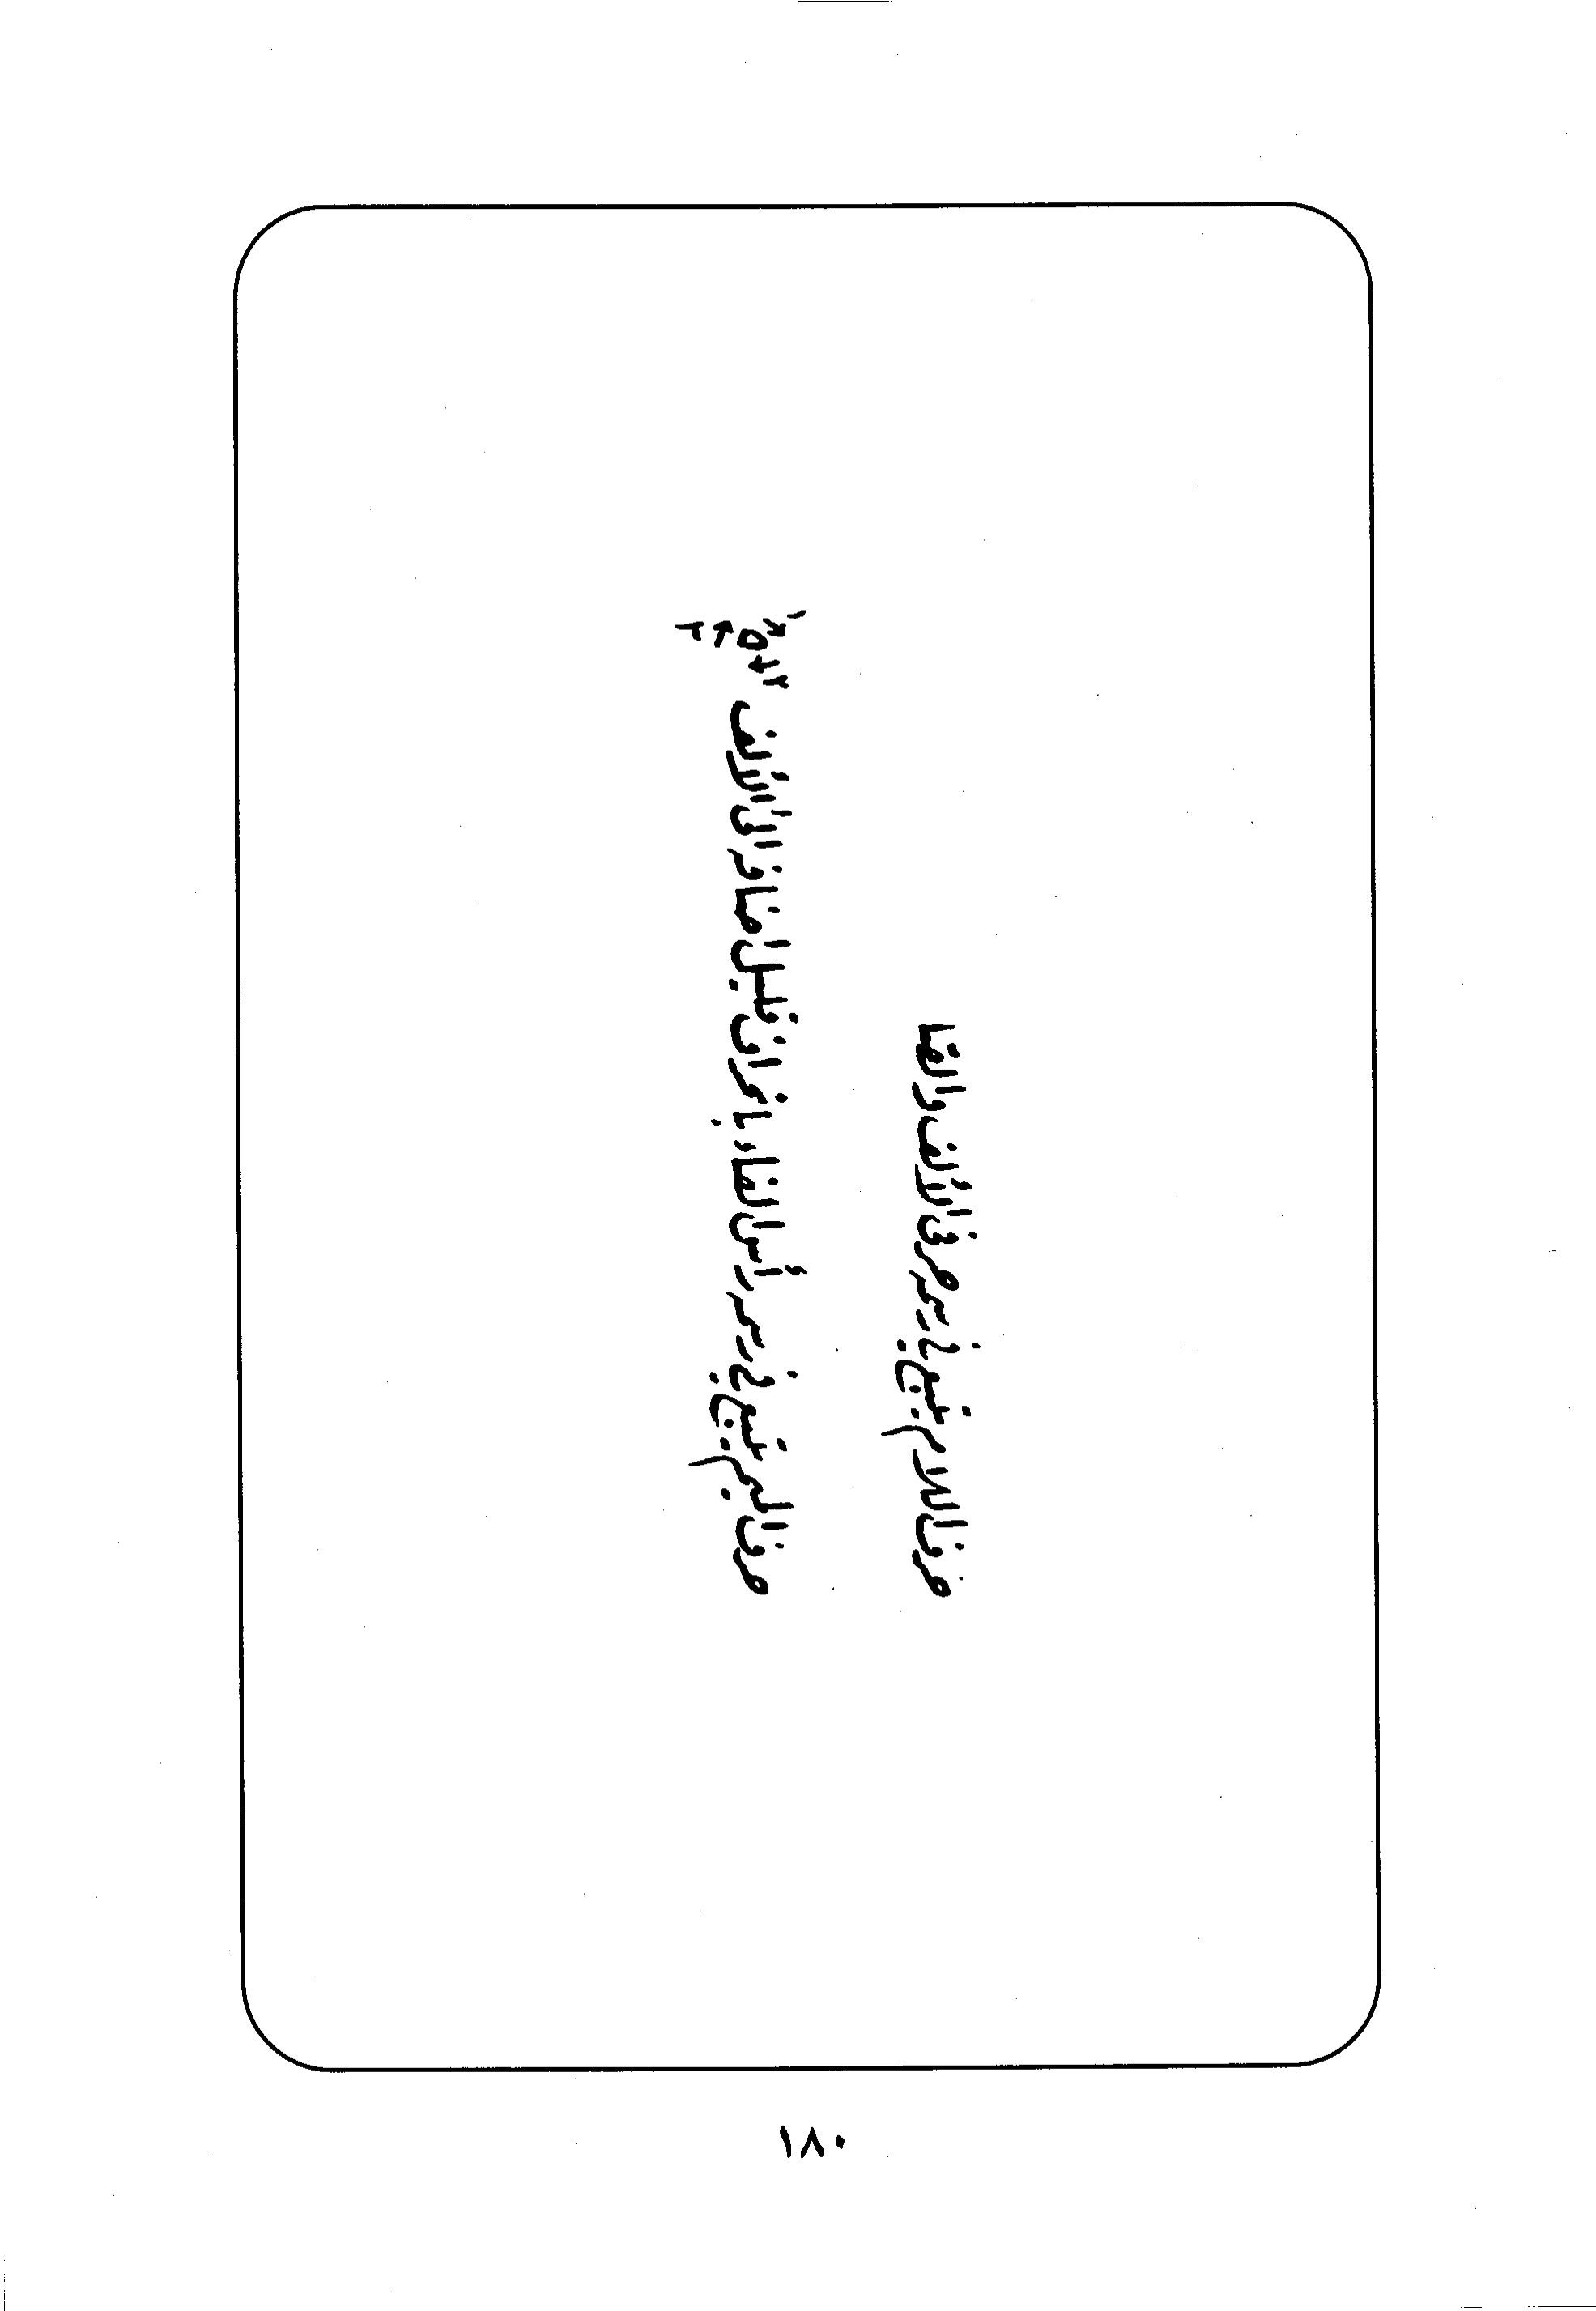 حرف اللام يتبع فيه سير حرفي الألف والفا
حرف الميم يتبع فيه سير رأس الفاء بانحراف قليل اضافة إلى الألف
١٨٠